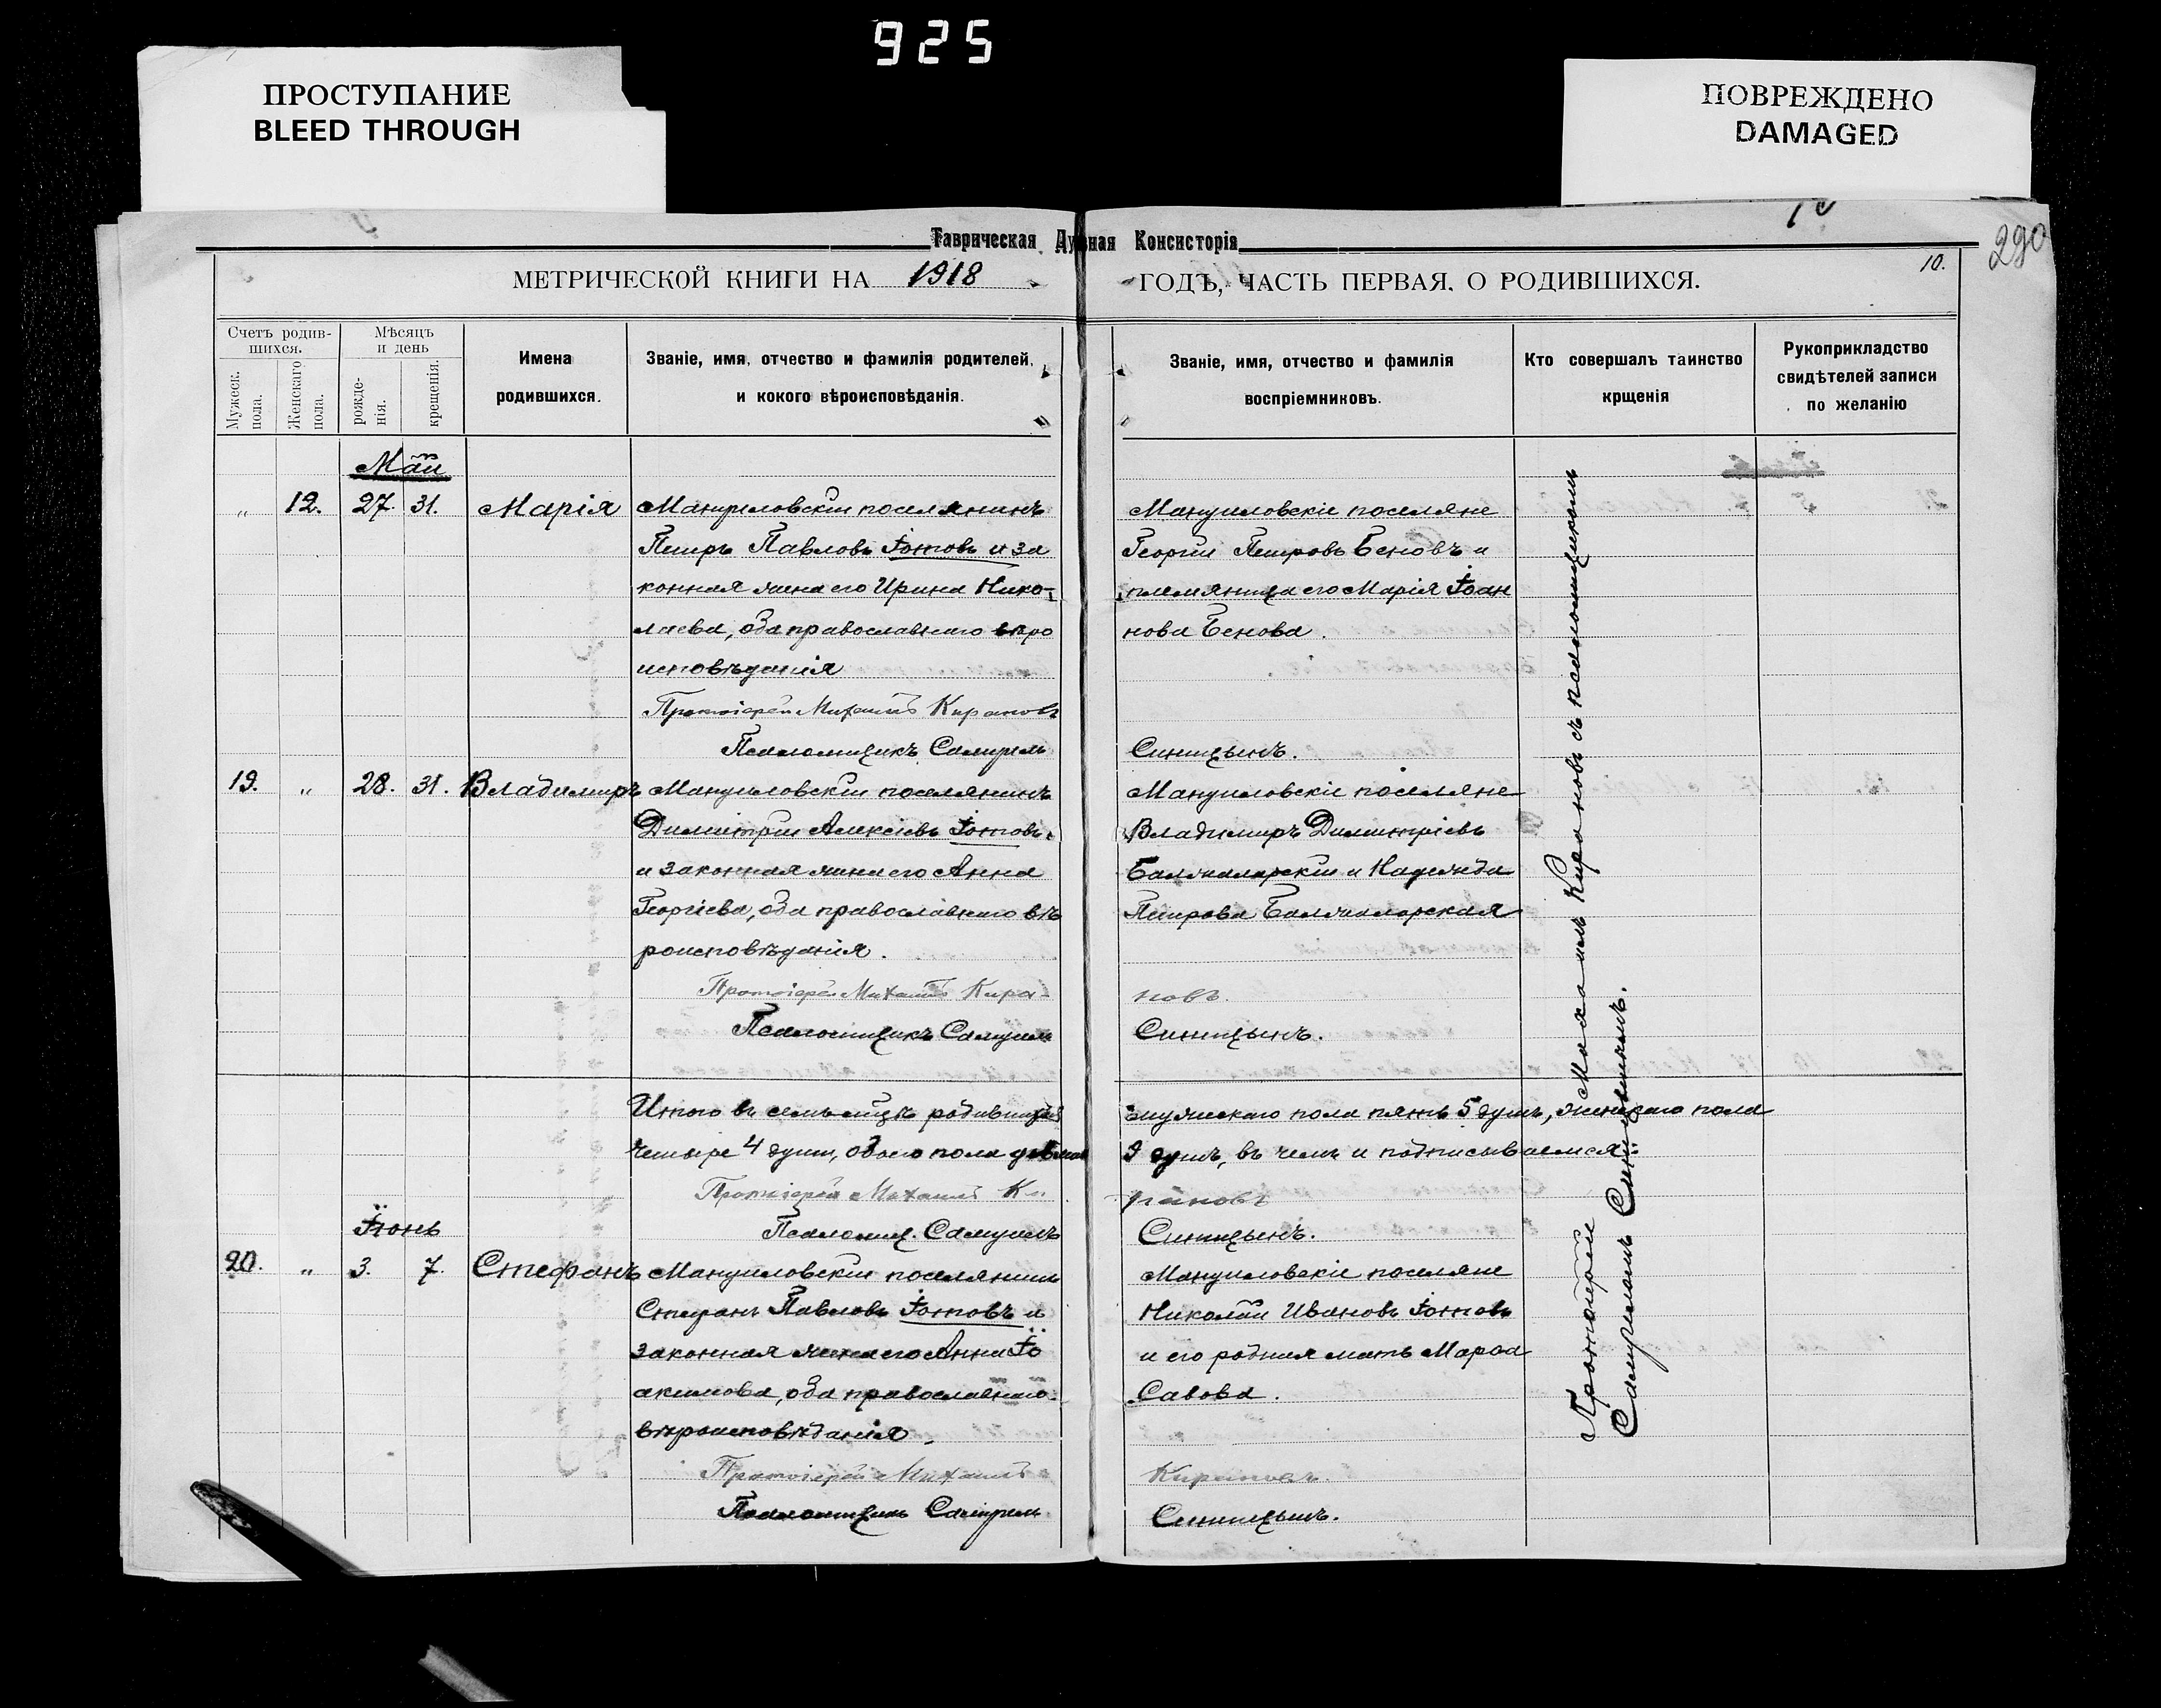 925
ПРОСТУПАНИЕ
BLEED THROUGH
ПОВРЕЖДЕНО
DAMAGED
Таврическая Духовная Консисторія
290
МЕТРИЧЕСКОЙ КНИГИ НА 1918 ГОДЪ, ЧАСТЬ ПЕРВАЯ, О РОДИВШИХСЯ.
10.
Счетъ родив-
шихся.
Мужеск.
пола.
Женскаго
пола.
Мѣсяцъ
и день
рожде-
нія.
крещенія.
Имена
родившихся.
Званіе, имя, отчество и фамилія родителей,
и кокого вѣроисповѣданія.
Званіе, имя, отчество и фамилія
воспріемниковъ.
Кто совершалъ таинство
крщенія
Рукоприкладство
свидѣтелей записи
по желанію
Май
„ 12. 27. 31. Марія
Мануиловскій поселянинъ
Петръ Павловъ Іотовъ и за
конная жена его Ирина Нико-
лаева, оба православнаго вѣро
исповѣданія
Протоіерей Михаилъ Кирановъ
Псаломщикъ Самуилъ Синицынъ.
Мануиловскіе поселяне
Георгій Петровъ Беновъ и
племянница его Марія Іоан
нова Бенова.
19. „ 28. 31. Владимиръ
Мануиловскій поселянинъ
Димитрій Алексіевъ Іотовъ
и законная жена его Анна
Георгіева, оба православнаго вѣ
роисповѣданія.
Протоіерей Михаилъ Кира-
новъ.
Псаломщикъ Самуилъ Синицынъ.
Мануиловскіе поселяне
Владимиръ Димитріевъ
и Надежда
Петрова
Итого въ семъ мѣсяцѣ родившихся мужескаго пола пять 5 душъ, женскаго пола
четыре 4 души, обоего пола девять 9 душъ, въ чемъ и подписываемся:
Протоіерей Михаилъ Кирановъ
Псаломщ. Самуилъ Синицынъ.
Іюнь
20. „ 3. 7. Стефанъ
Мануиловскій поселянинъ
Стефанъ Павловъ Іотовъ и
законная жена его Анна Іо
акимова, оба православнаго
вѣроисповѣданія.
Протоіерей Михаилъ Кирановъ.
Псаломщикъ Самуилъ Синицынъ.
Мануиловскіе поселяне
Николай Ивановъ Іотовъ
и его родная мать Марѳа
Савова.
Протоіерей Михаилъ Кирановъ съ псаломщикомъ
Самуиломъ Синицынымъ.